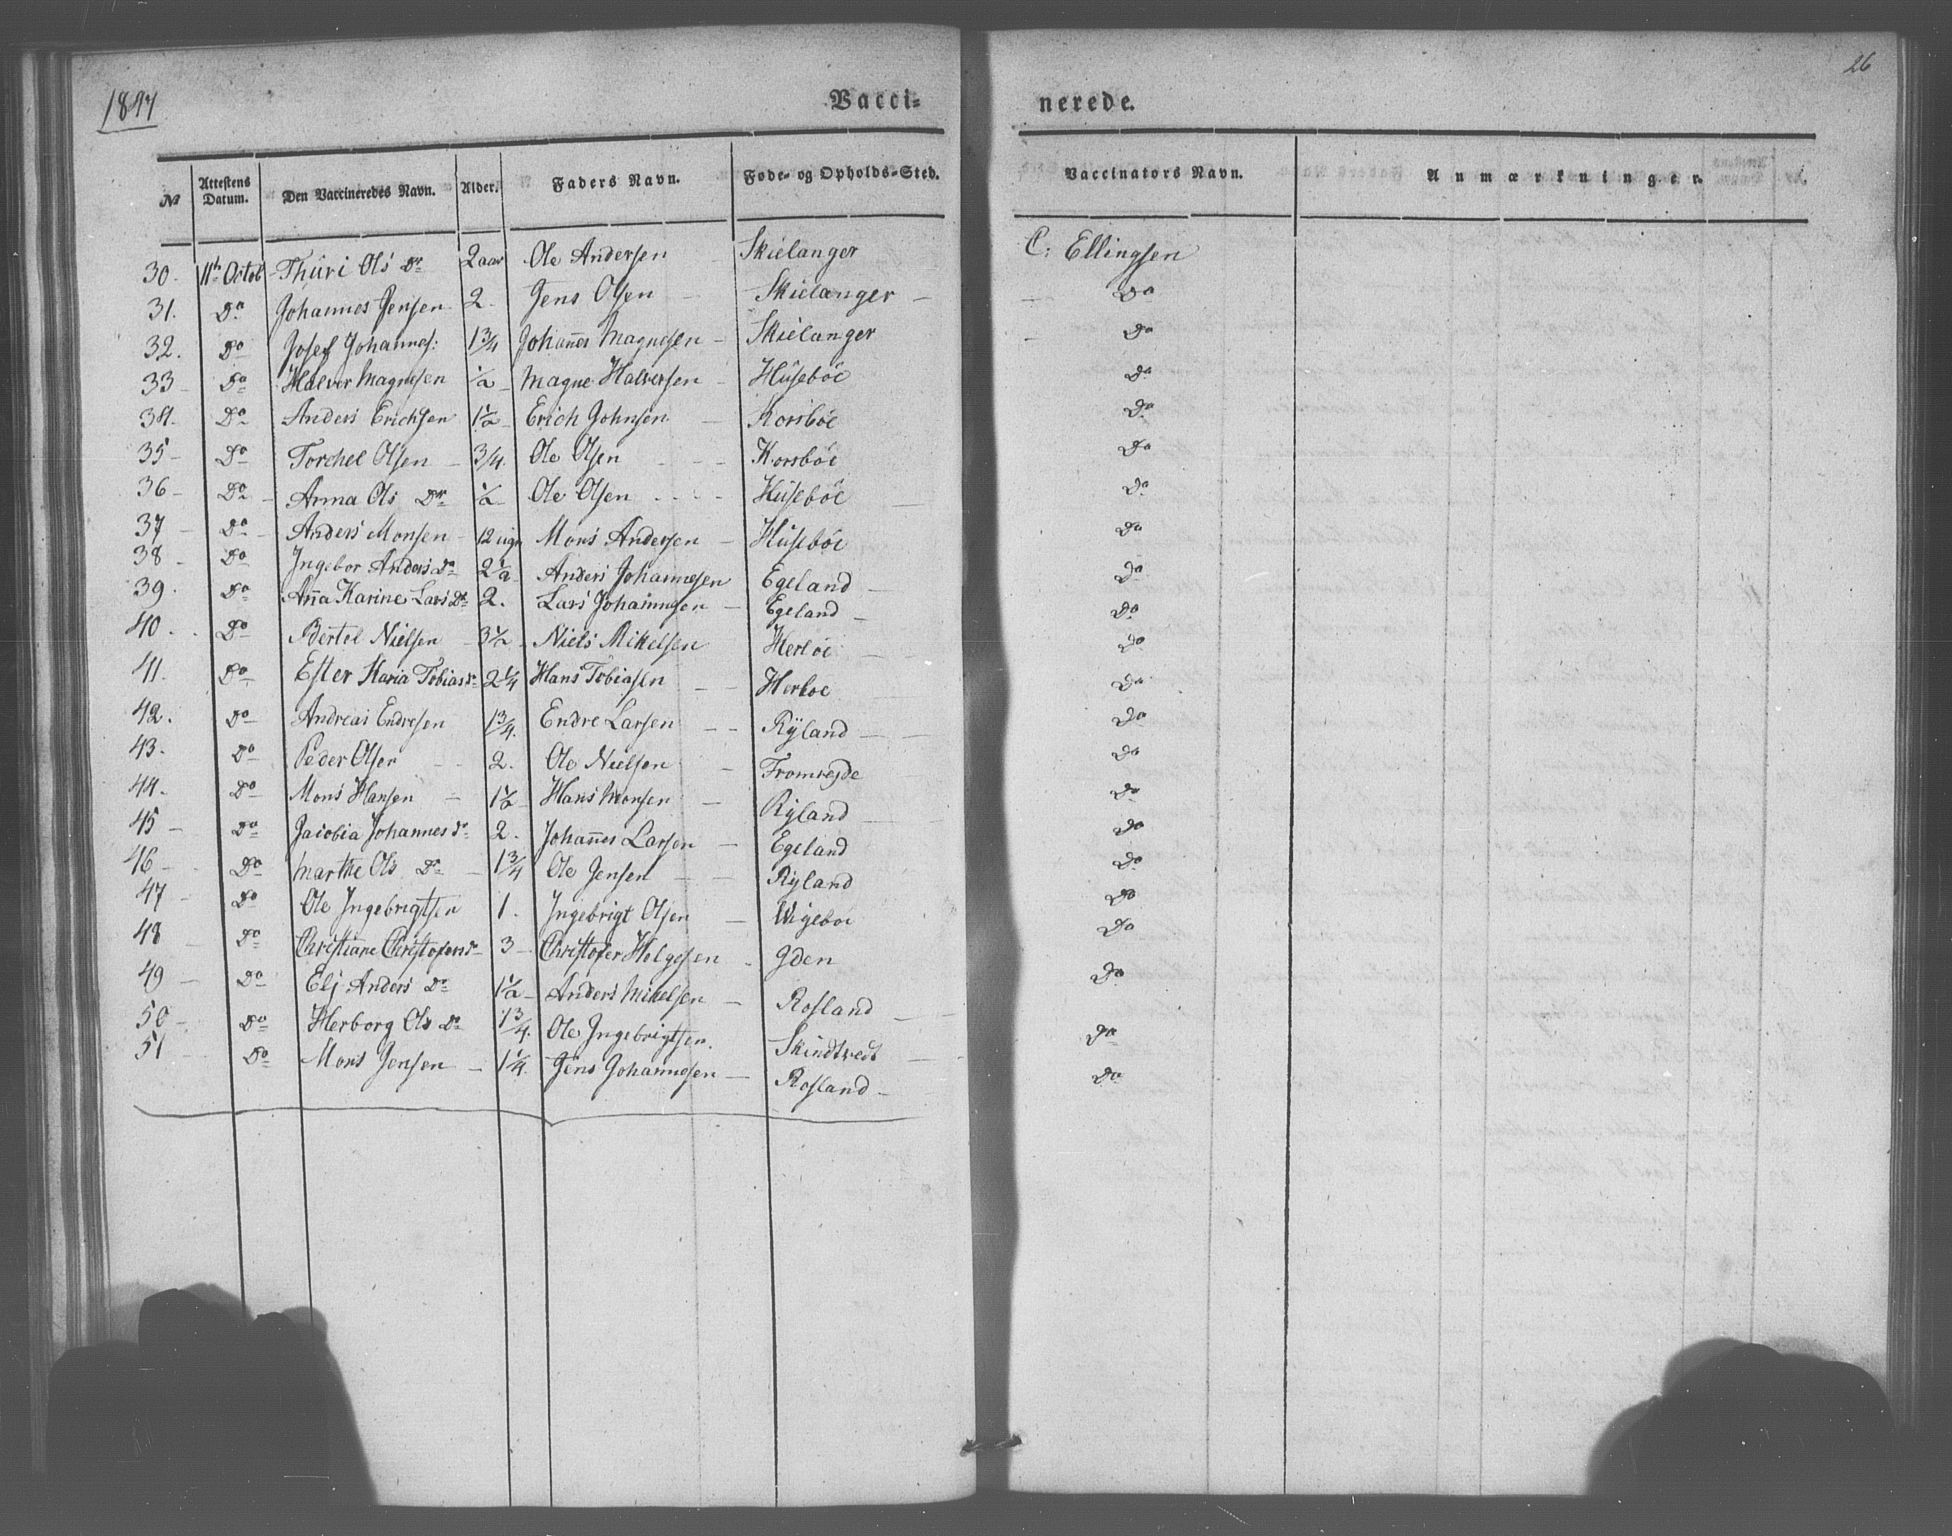 26
Vacci- nerede.
No Attestens Datum. Den Vaccineredes Navn. Alder. Faders Navn. Føde- og Opholds-Sted. Vaccinators Navn. Anmærkninger.
30. 11th Octob Thuri Ols Dr 2 aar Ole Andersen Skielanger C: Ellingsen
31. Do Johannes Jensen 2. Jens Olsen Skielanger Do
32. Do Josef Johannes: 1 3/4 Johannes Magnesen Skielanger Do
33 Do Halver Magnesen 1/2 Magne Halversen Husebøe Do
34. Do Anders Erichsen 1 1/2 Erich Johnsen Korsbøe Do
35 Do Torchel Olsen 3/4. Ole Olsen Korsbøe Do
36 Do Anna Ols Dr 1/2 Ole Olsen Husebøe Do
37 Do Anders Monsen 12 uger Mons Andersen Husebøe Do
38 Do Ingebor Anders Dr 2 1/2 Anders Johannesen Egeland Do
39. Do Anna Karine Lars Dr 2. Lars Johannesen Egeland Do
40. Do Bertel Nielsen 3 1/2 Niels Mikelsen Herløe Do
41. Do Ester Maria Tobias dr 2 1/4 Hans Tobiasen Herløe Do
42. Do Andreas Endresen 1 3/4. Endre Larsen Ryland Do
43. Do Peder Olsen 2. Ole Nielsen Fromreide Do
44. Do Mons Hansen 1 1/2 Hans Monsen Ryland Do
45 Do Jacobia Johannes dr 2. Johannes Larsen Egeland Do
46 Do Marthe Ols Dr 1 3/4 Ole Jensen Ryland Do
47 Do Ole Ingebrigtsen 1. Ingebrigt Olsen Wigebøe Do
48 Do Christiane Christofers dr 3 Christofer Helgesen Gden Do
49 Do Eli Anders Dr 1 1/2 Anders Mikelsen Rosland Do
50 Do Herborg Ols Dr 1 3/4. Ole Ingebrigtsen. Skindtvedt Do
51 Do Mons Jensen 1 1/4. Jens Johannesen Rosland Do